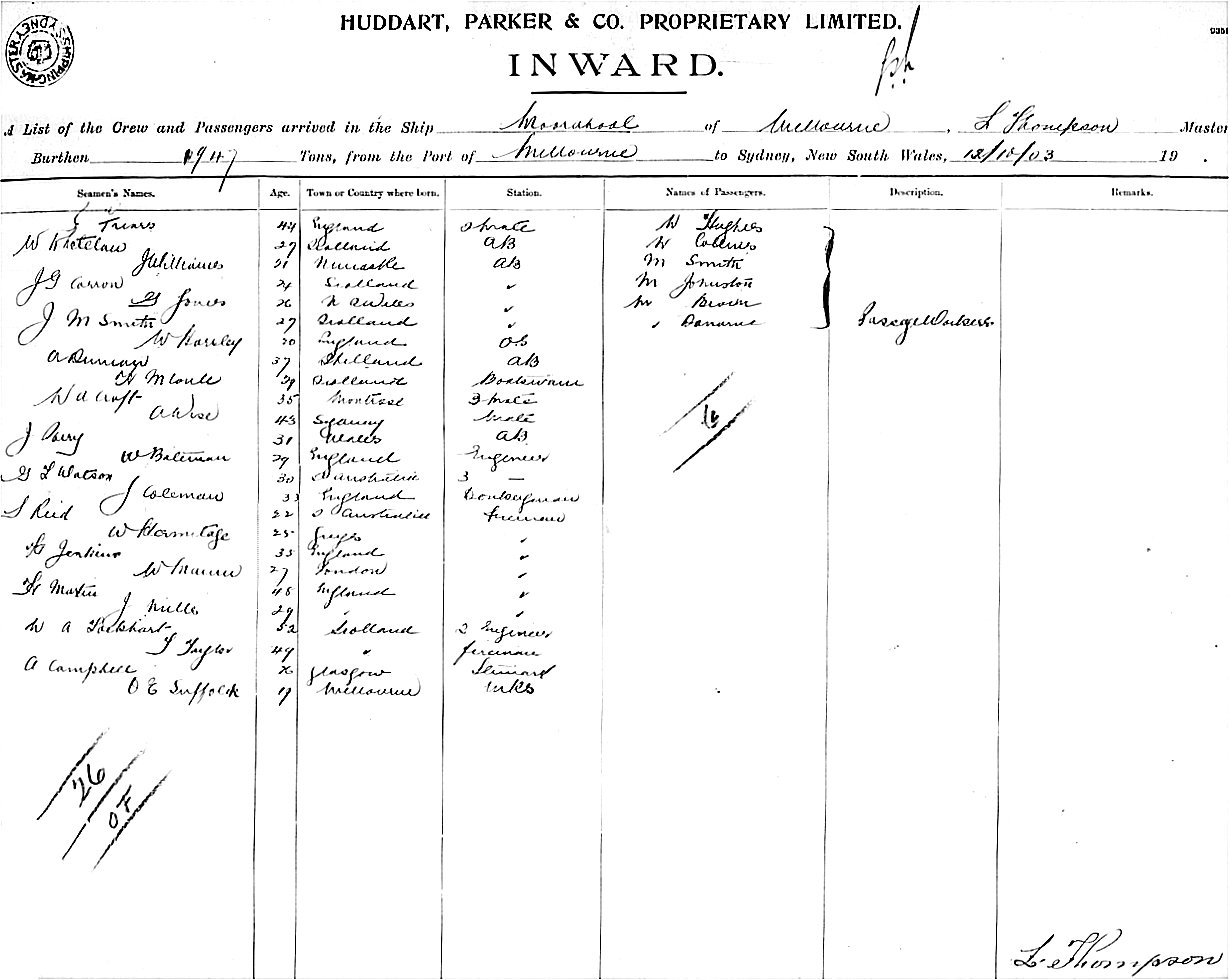 SHIPPING MASTER SYDNEY
HUDDART, PARKER & CO. PROPRIETARY LIMITED.
INWARD.
A List of the Crew and Passengers arrived in the Ship Moorabool of Melbourne, L Thompson Master
Burthen Tons, from the Port of Melbourne to Sydney, New South Wales, 12/10/03 19 .
Seamen's Names. Age. Town or Country where born. Station. Names of Passengers. Description. Remarks.
44 England 2 mate W Hughes
W 27 Scotland AB W Collins
J Williams 21 AB M Smith
J G Carron 24 Scotland " M Johnston
G Jones 26 N S Wales " Brown
J M Smith 27 Scotland " "
Passage Workers
W 20 England OS
A Duncan 37 AB
39 Scotland Boatswain
W A Croft 35 Montrose 3 mate
A Wise 43 Sydney Mate
J Parry 31 Wales AB
W Bateman 29 England Engineer
G L Watson 30 S Australia 3 —
J Coleman 33 England Donkeyman
S Reid 22 S Australia fireman
W Hermitage 25 "
Jenkins 35 England "
W 27 London "
H Martin 45 England "
J Mills 29 " "
W A Lockhart 52 Scotland 2 Engineer
Taylor 49 " fireman
A Campbell Glasgow Steward
O E Suffolk 19 Melbourne
6
26
L. Thompson